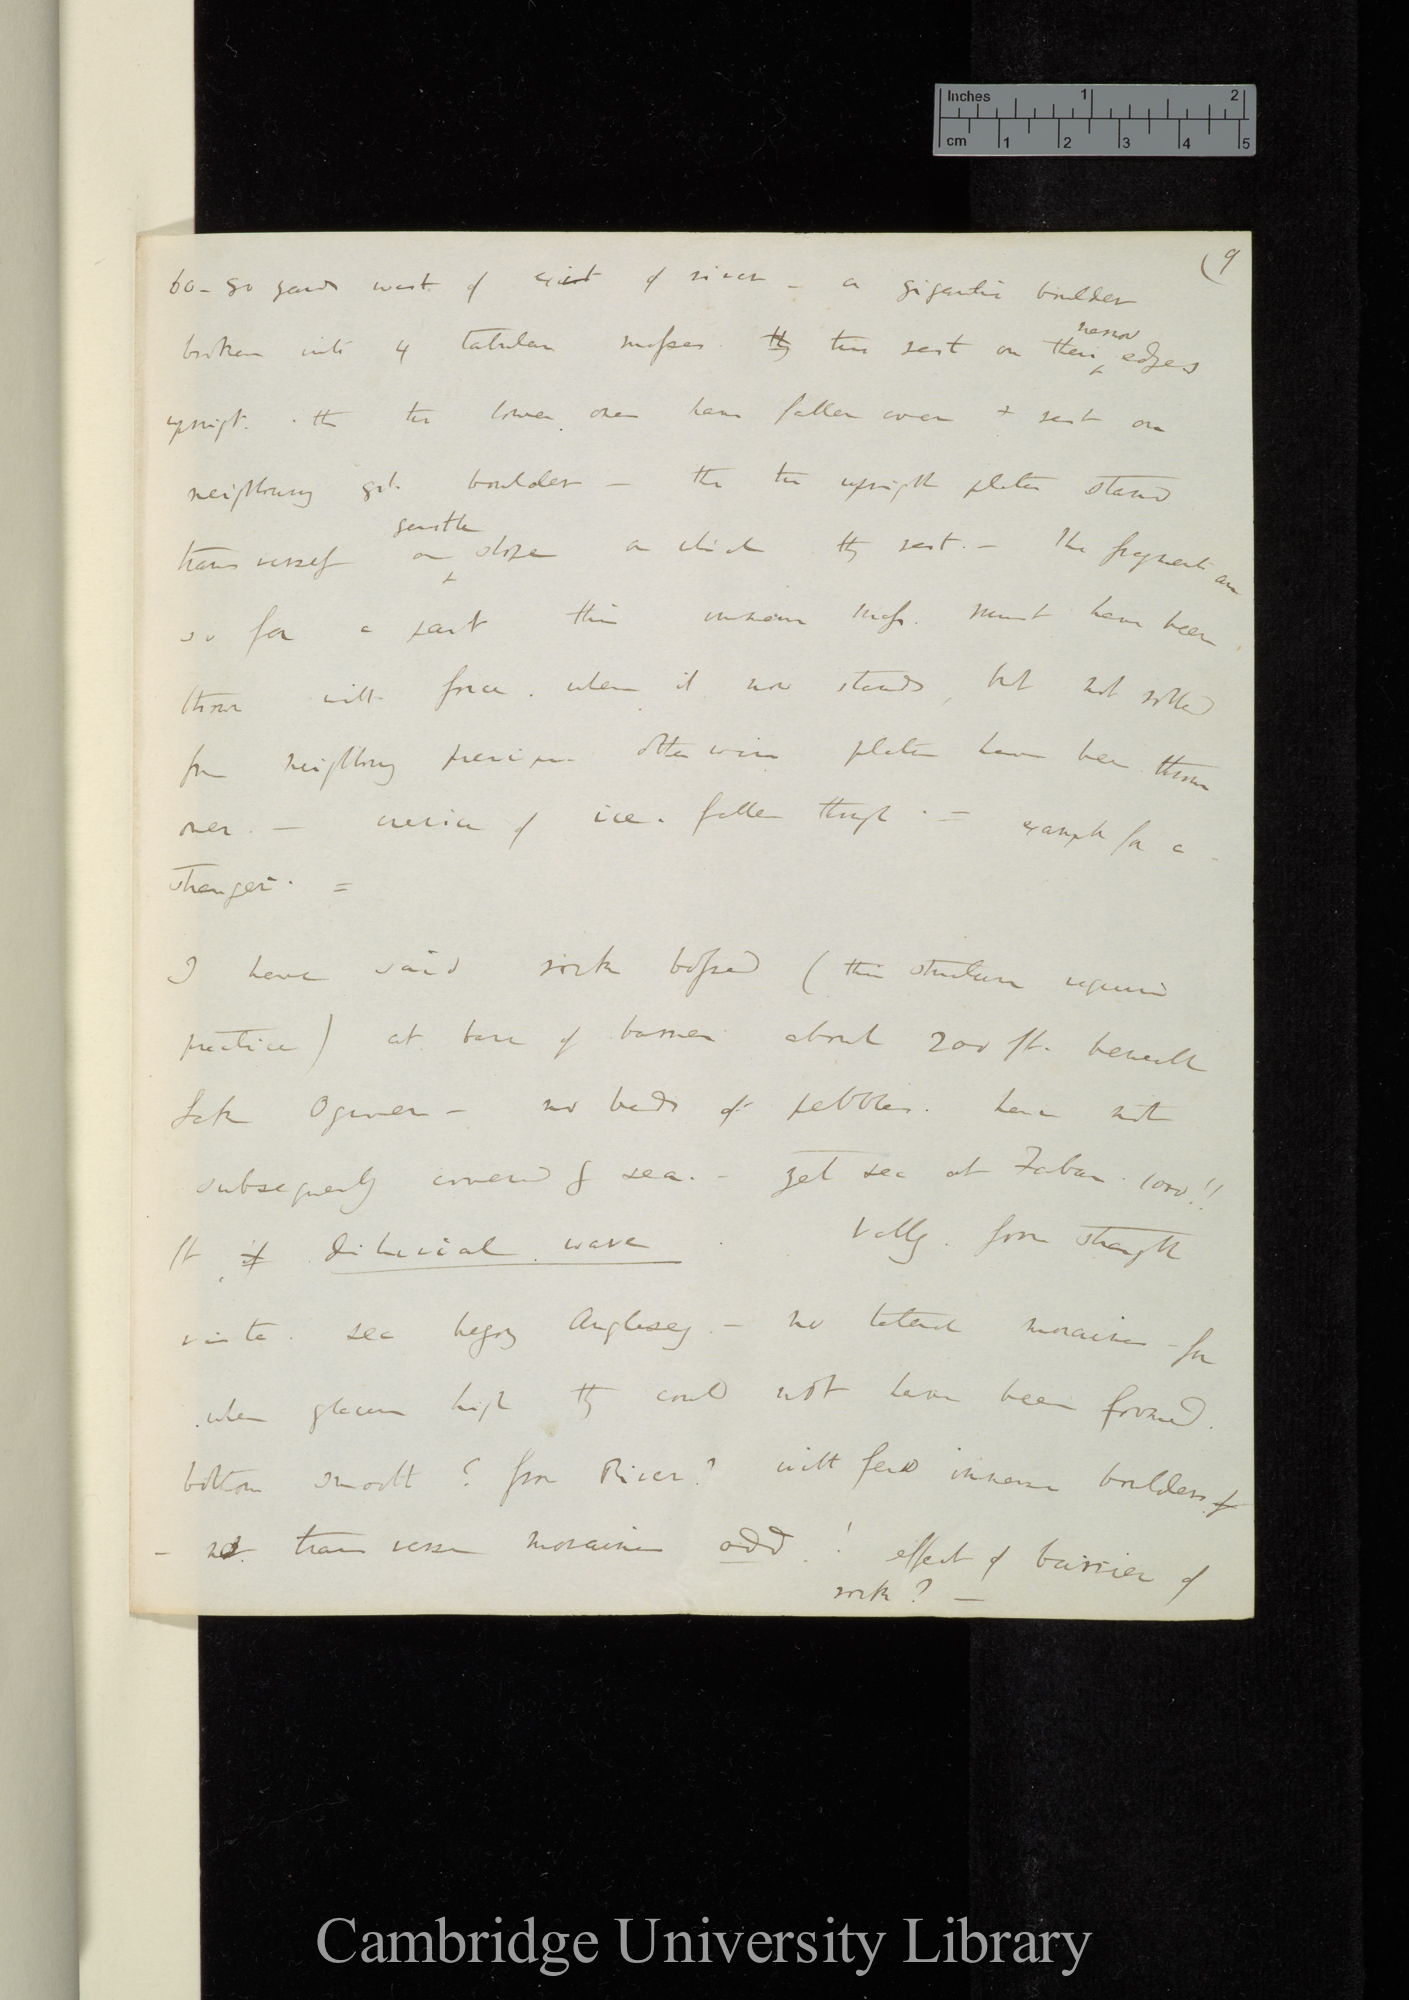 Inches 1 2
cm 1 2 3 4 5
(9
60-80 yards west of exit of river – a gigantic boulder
narrow
broken into 4 tabular masses. two rest on their edges
upright. the two lower ones have fallen over & rest on
neighbouring gt. boulder – the two upright plates stand
gentle
transversely on slope on which they rest. – The fragments are
so far apart this immense mass. must have been
thrown with force. where it now stands, but not rolled
from neighbouring precipice otherwise plates have been thrown
over. – crevice of ice. fallen through. = example for a
stranger. =
I have said rock bossed (this structure requires
practice) at base of barrier about 200 ft. beneath
Lake Ogwen – no beds of pebbles. hence not
subsequently covered by sea. – yet sea at 1000!!
ft diluvial wave. Valley. from straight
vista. sea beyond Anglesey – no lateral moraine – for
when glacier high they could not have been formed.
bottom smooth? from River? with few immense boulders
– not transverse moraines odd! effect of barrier of
rock? –
Cambridge University Library